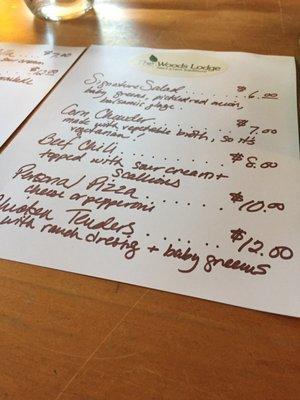 The Woods Lodge
$7.00
sour cream
Signature Salad .... $6.00
baby greens, pickled red onion,
balsamic glaze.
Corn Chowder ..... $7.00
made with vegetable broth, so it's
vegetarian!
Beef Chili ....... $8.00
topped with sour cream +
scallions
Personal Pizza ..... $10.00
cheese or pepperoni
Chicken Tenders ..... $12.00
with ranch dressing + baby greens